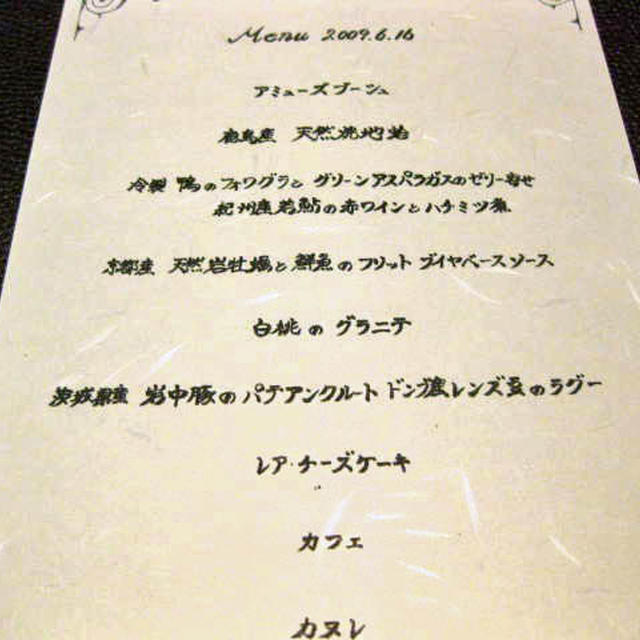 Menu 2009.6.16
アミューズブーシュ
鹿島産 天然焼地蛤
冷製 鴨のフォワグラと グリーンアスパラガスのゼリー寄せ
紀州産若鮎の赤ワインとハチミツ煮
京都産 天然岩牡蠣と鮮魚のフリット ブイヤベースソース
白桃の グラニテ
茨城県産 岩中豚のパテアンクルート ドン産レンズ豆のラグー
レア・チーズケーキ
カフェ
カヌレ